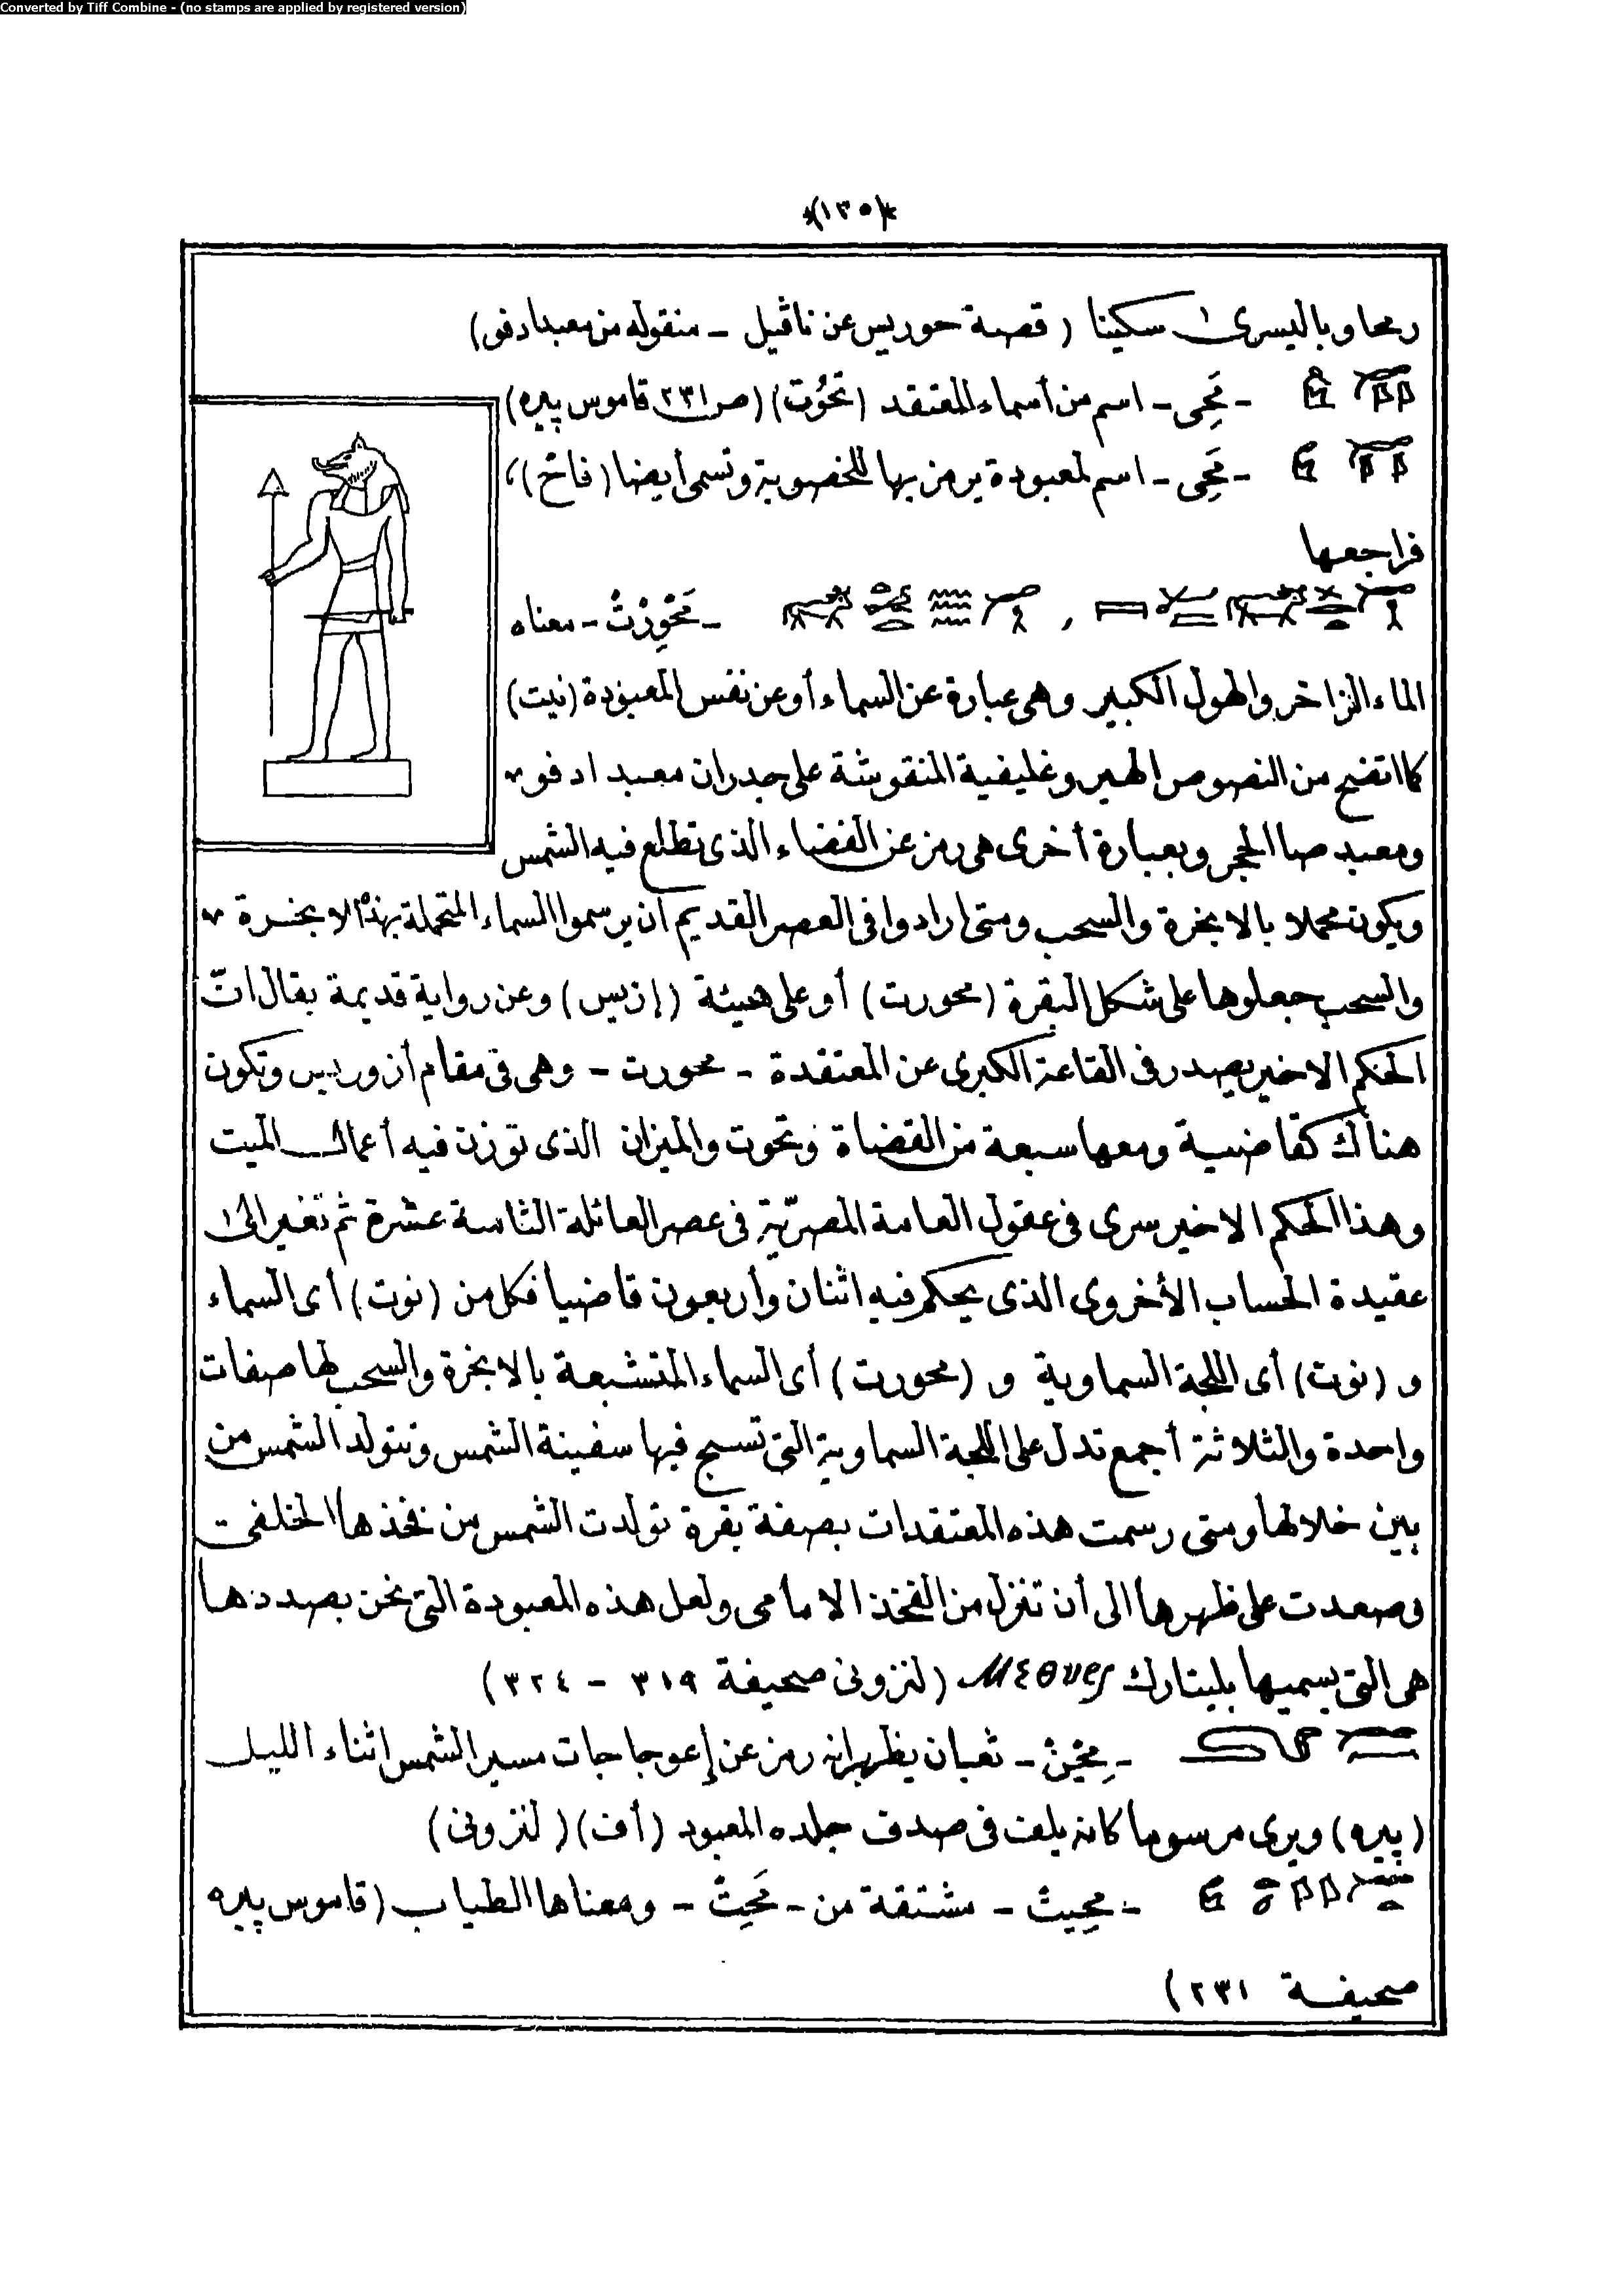 Converted by Tiff Combine - (no stamps are applied by registered version)
*(١٣٥)*
رمحا وباليسرى سكينا ( قصة حوريس عن ناڤيل – منقوله من معبد ادفو)
– مَحِى – اسم من أسماء المعتقد (تحُوُت) (صـ ٢٣١ قاموس پيره)
– مَحِى – اسم لمعبودة يرمز بها للخصوبة وتسمى أيضا (فاخ)،
فراجعها
– مَحْوِرْتْ – معناه
الماء الزاخر والهول الكبير وهى عبارة عن السماء أو عن نفس المعبودة (نيت)
كما اتضح من النصوص الهيروغليفية المنقوشة على جدران معبد ادفو
ومعبد صا الحجر وبعبارة أخرى هى رمز عن الفضاء الذى تطلع فيه الشمس
ويكون محملا بالابخرة والسحب ومتى ارادوا فى العصر القديم أن يرسموا السماء المتحملة بهذه الابخرة
والسحب جعلوها على شكل البقرة (محورت) أو على هيئة (إزيس) وعن رواية قديمة يقال انّ
الحكم الاخير يصدر فى القاعة الكبرى عن المعتقدة – محورت – وهى فى مقام أزوريس وتكون
هناك كقاضية ومعها سبعة من القضاة وتحوت والميزان الذى توزن فيه أعمال الميت
وهذا الحكم الاخير سرى فى عقول العامة المصريّة فى عصر العائلة الثامنة عشرة ثم تغير الى
عقيدة الحساب الأخروى الذى يحكم فيه اثنان وأربعون قاضيا فكل من (نوت) أى السماء
و (نوت) أى اللجة السماوية و (محورت) أى السماء المتشبعة بالابخرة والسحب لها صفات
واحدة والثلاثة أجمع تدل على اللجة السماوية التى تسبح فيها سفينة الشمس وتتولد الشمس من
بين خلالها ومتى رسمت هذه المعتقدات بصفة بقرة تولدت الشمس من فخذها الخلفى
وصعدت على ظهرها الى أن تنزل من الفخذ الامامى ولعل هذه المعبودة التى نحن بصددها
هى التى يسميها بليتارك Μεθυες (لنزونى صحيفة ٣١٩ – ٣٢٤)
– مِحِنْ – ثعبان يظهر انه رمز عن إعوجاجات مسير الشمس اثناء الليل
(پيره) ويرى مرسوما كانه يلف فى صدف جلده المعبود (أف) (لنزونى)
– مِحِيتْ – مشتقة من – مَحِتْ – ومعناها الطياب (قاموس پيره
صحيفة ٢٣١)